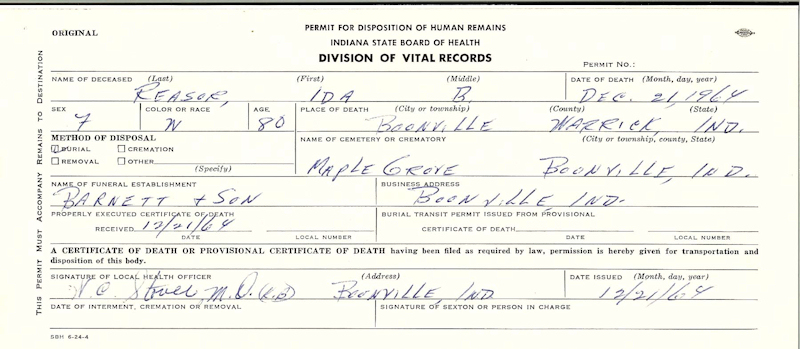 ORIGINAL
PERMIT FOR DISPOSITION OF HUMAN REMAINS
INDIANA STATE BOARD OF HEALTH
DIVISION OF VITAL RECORDS
PERMIT NO.:
THIS PERMIT MUST ACCOMPANY REMAINS TO DESTINATION
NAME OF DECEASED (Last) (First) (Middle) DATE OF DEATH (Month, day, year)
REASOR, IDA B. DEC. 21, 1964
SEX COLOR OR RACE AGE PLACE OF DEATH (City or township) (County) (State)
F W 80 BOONVILLE WARRICK, IND.
METHOD OF DISPOSAL NAME OF CEMETERY OR CREMATORY (City or township, county, State)
BURIAL CREMATION
REMOVAL OTHER
(Specify)
MAPLE GROVE BOONVILLE, IND.
NAME OF FUNERAL ESTABLISHMENT BUSINESS ADDRESS
BARNETT + SON BOONVILLE, IND.
PROPERLY EXECUTED CERTIFICATE OF DEATH BURIAL TRANSIT PERMIT ISSUED FROM PROVISIONAL
RECEIVED 12/21/64 CERTIFICATE OF DEATH
DATE LOCAL NUMBER DATE LOCAL NUMBER
A CERTIFICATE OF DEATH OR PROVISIONAL CERTIFICATE OF DEATH having been filed as required by law, permission is hereby given for transportation and
disposition of this body.
SIGNATURE OF LOCAL HEALTH OFFICER (Address) DATE ISSUED (Month, day, year)
M.D. BOONVILLE, IND 12/21/64
DATE OF INTERMENT, CREMATION OR REMOVAL SIGNATURE OF SEXTON OR PERSON IN CHARGE
SBH 6-24-4